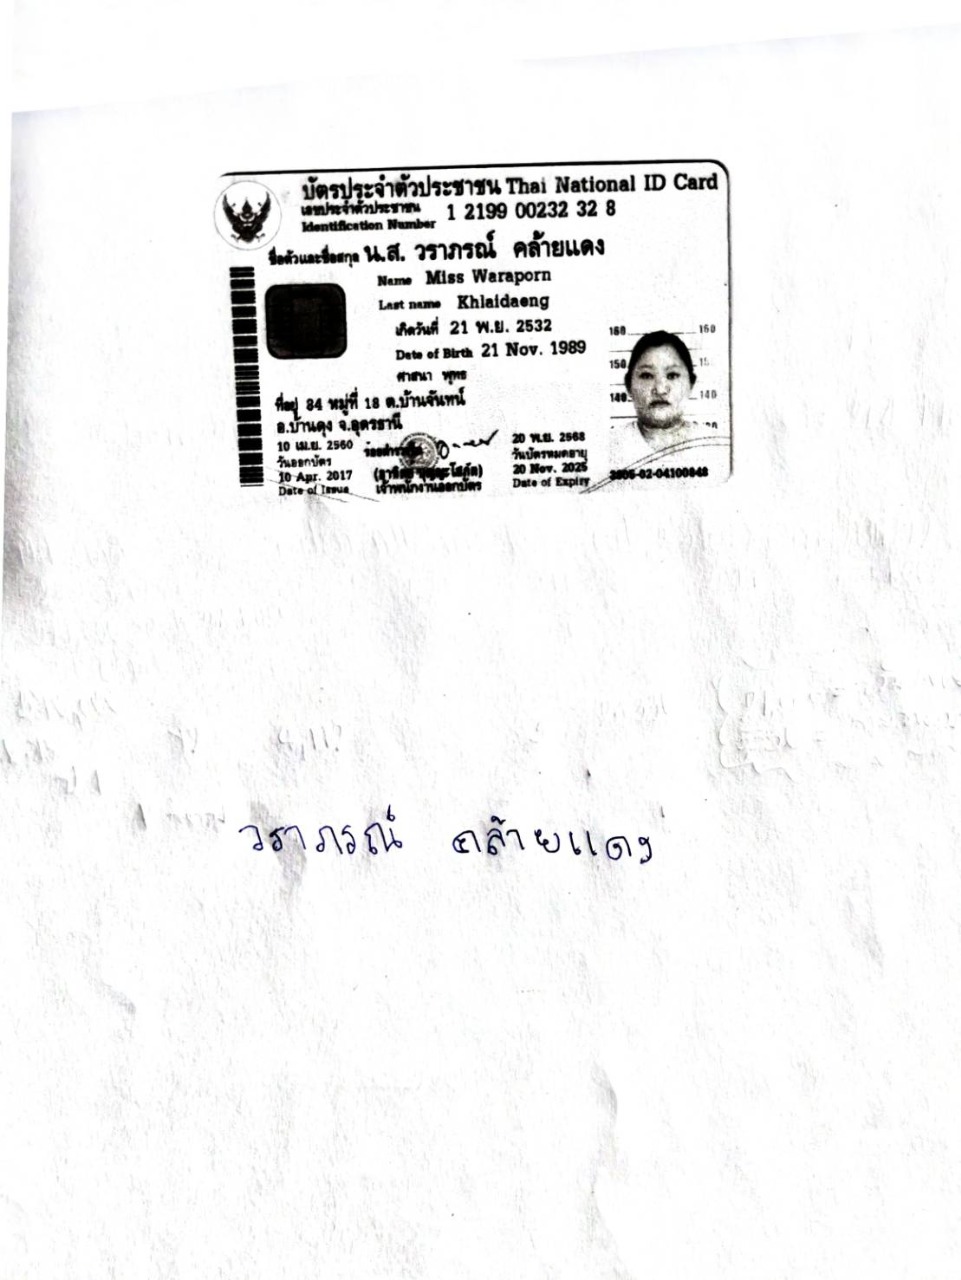 บัตรประจำตัวประชาชน Thai National ID Card
เลขประจำตัวประชาชน
Identification Number 1 2199 00232 32 8
ชื่อตัวและชื่อสกุล น.ส. วราภรณ์ คล้ายแดง
Name Miss Waraporn
Last name Khlaidaeng
เกิดวันที่ 21 พ.ย. 2532
Date of Birth 21 Nov. 1989
ศาสนา พุทธ
ที่อยู่ 84 หมู่ที่ 18 ต.บ้านจันทน์
อ.บ้านดุง จ.อุดรธานี
10 เม.ย. 2560
วันออกบัตร
10 Apr. 2017
Date of Issue
เจ้าพนักงานออกบัตร
20 พ.ย. 2568
วันบัตรหมดอายุ
20 Nov. 2025
Date of Expiry
160 160
150 15
140 140
วราภรณ์ คล้ายแดง